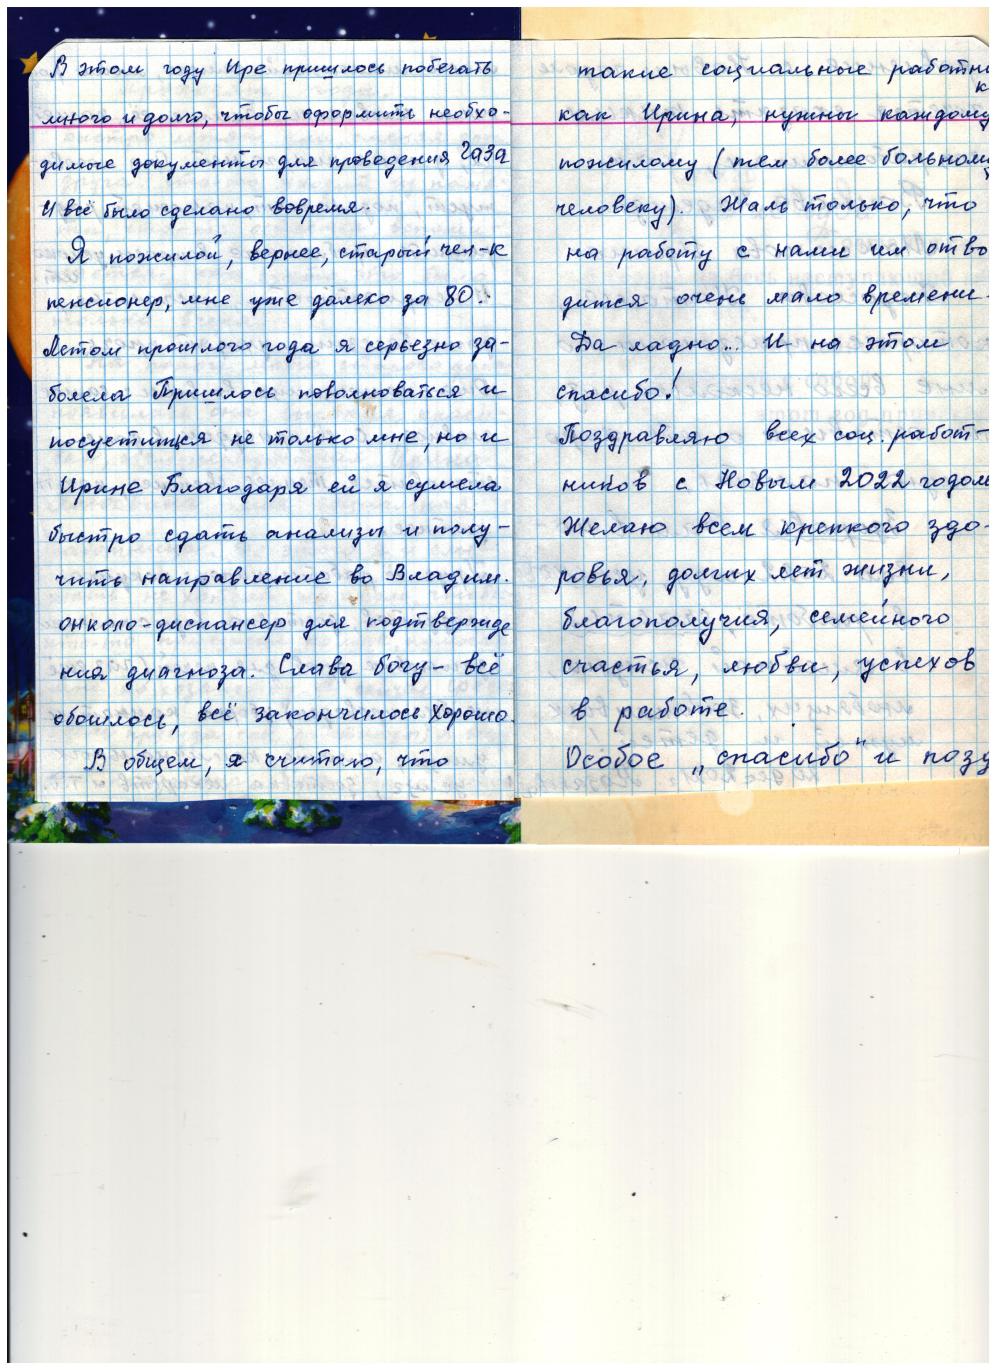 В этом году Ире пришлось побегать
много и долго, чтобы оформить необхо-
димые документы для проведения газа
И всё было сделано вовремя.
Я пожилой, вернее, старый чел-к
пенсионер, мне уже далеко за 80..
Летом прошлого года я серьезно за-
болела Пришлось поволноваться и
посуетится не только мне, но и
Ирине Благодаря ей я сумела
быстро сдать анализы и полу-
чить направление во Владим.
онколо-диспансер для подтвержде
ния диагноза. Слава богу - всё
обошлось, всё закончилось хорошо.
В общем, я считаю, что
такие социальные работник
как Ирина, нужны каждому
пожилому (тем более больному
человеку). Жаль только, что
на работу с нами им отво
дится очень мало времени.
Да ладно... И на этом
спасибо!
Поздравляю всех соц. работ-
ников с Новым 2022 годом
Желаю всем крепкого здо-
ровья, долгих лет жизни,
благополучия, семейного
счастья, любви, успехов
в работе.
Особое „спасибо" и позд